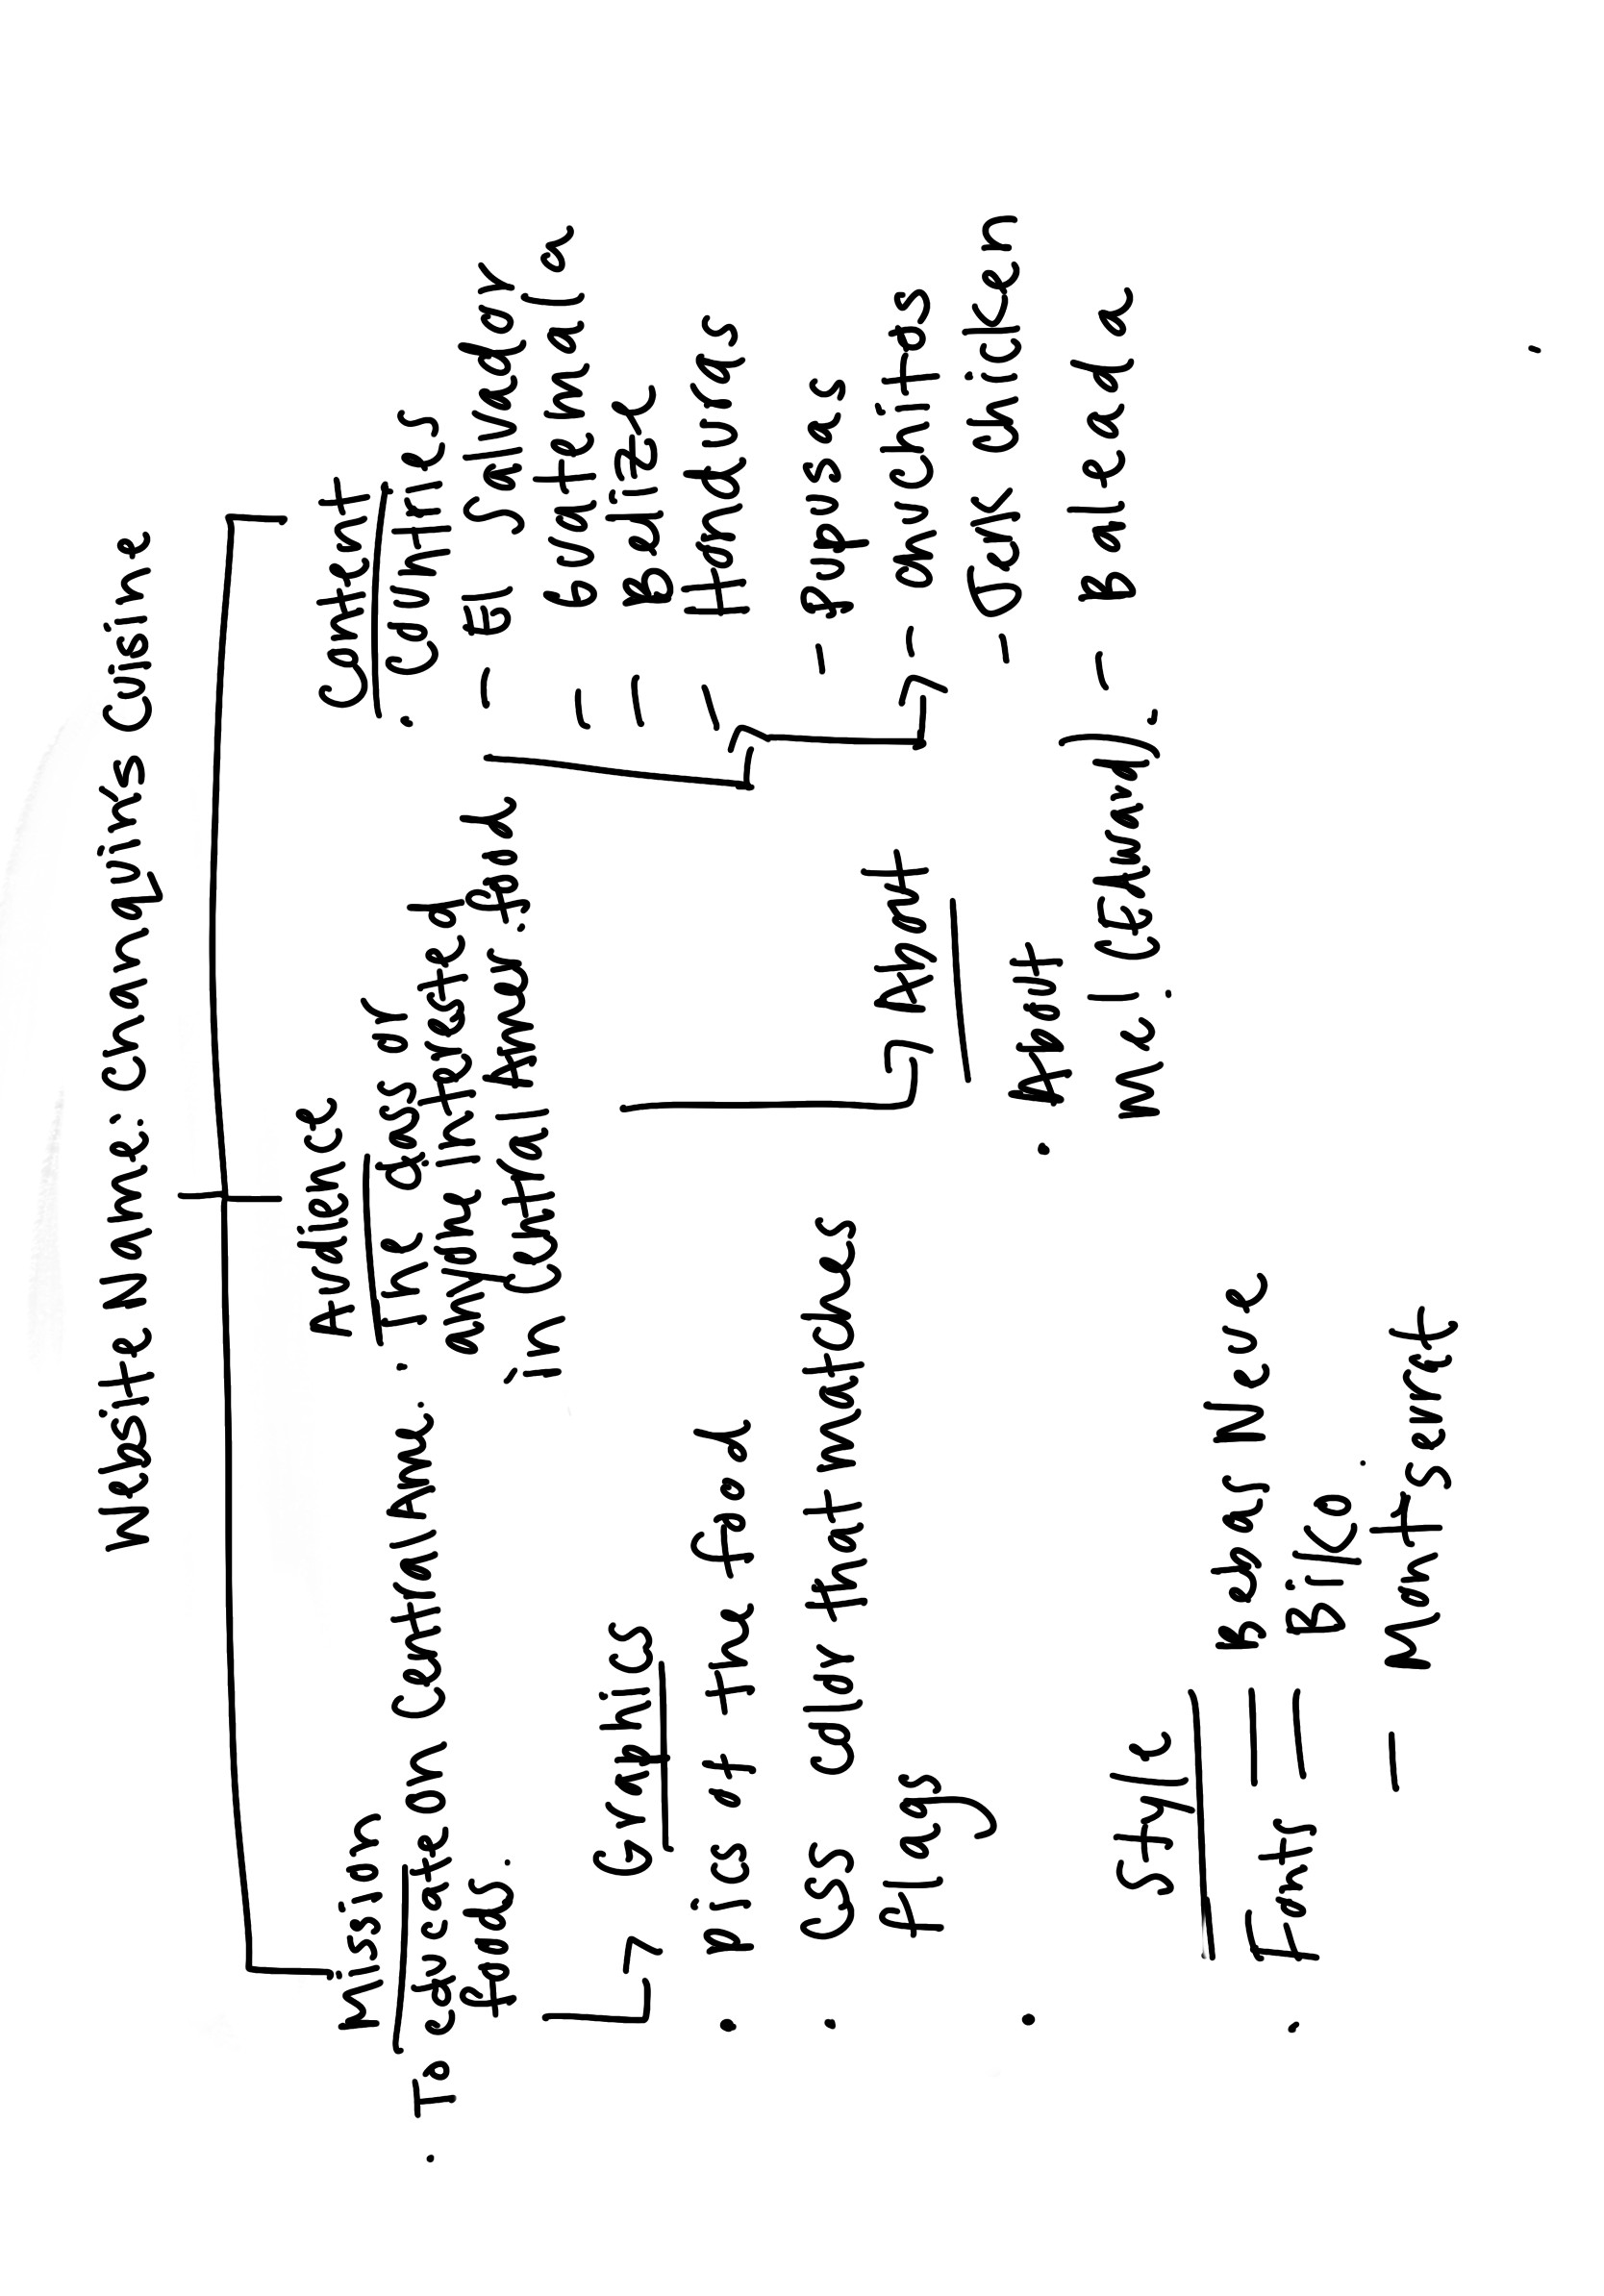 Website Name: Chanquin's Cuisine
Mission
· To educate on Central Ame.
foods.
Audience
· The class or
anyone interested
in Central Amer. food
Content
· Countries
- El Salvador
- Guatemala
- Belize
- Honduras
- Pupusas
- chuchitos
- Jerk chicken
- Baleada
Graphics
· pics of the food
· CSS color that matches
flags
·
About
· About
me! (Edward).
Style
· Fonts - Bebas Neue
- Bilko
- Montserrat